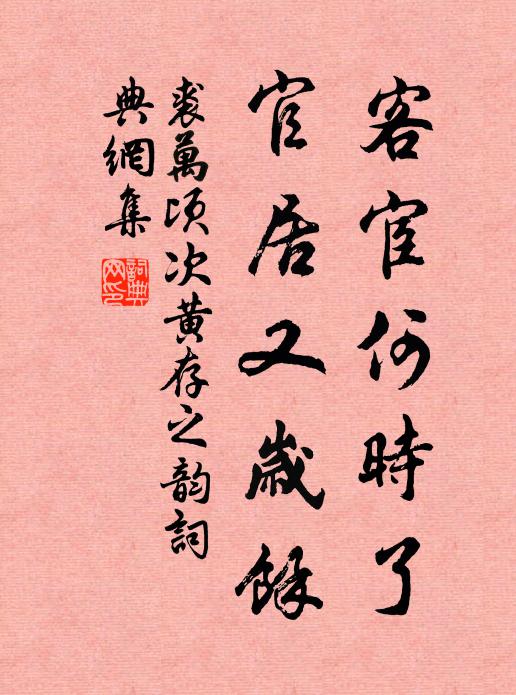 客宦何時了
官居又歲餘
裘萬頃次黃存之韵詞
典網集
詞典網印